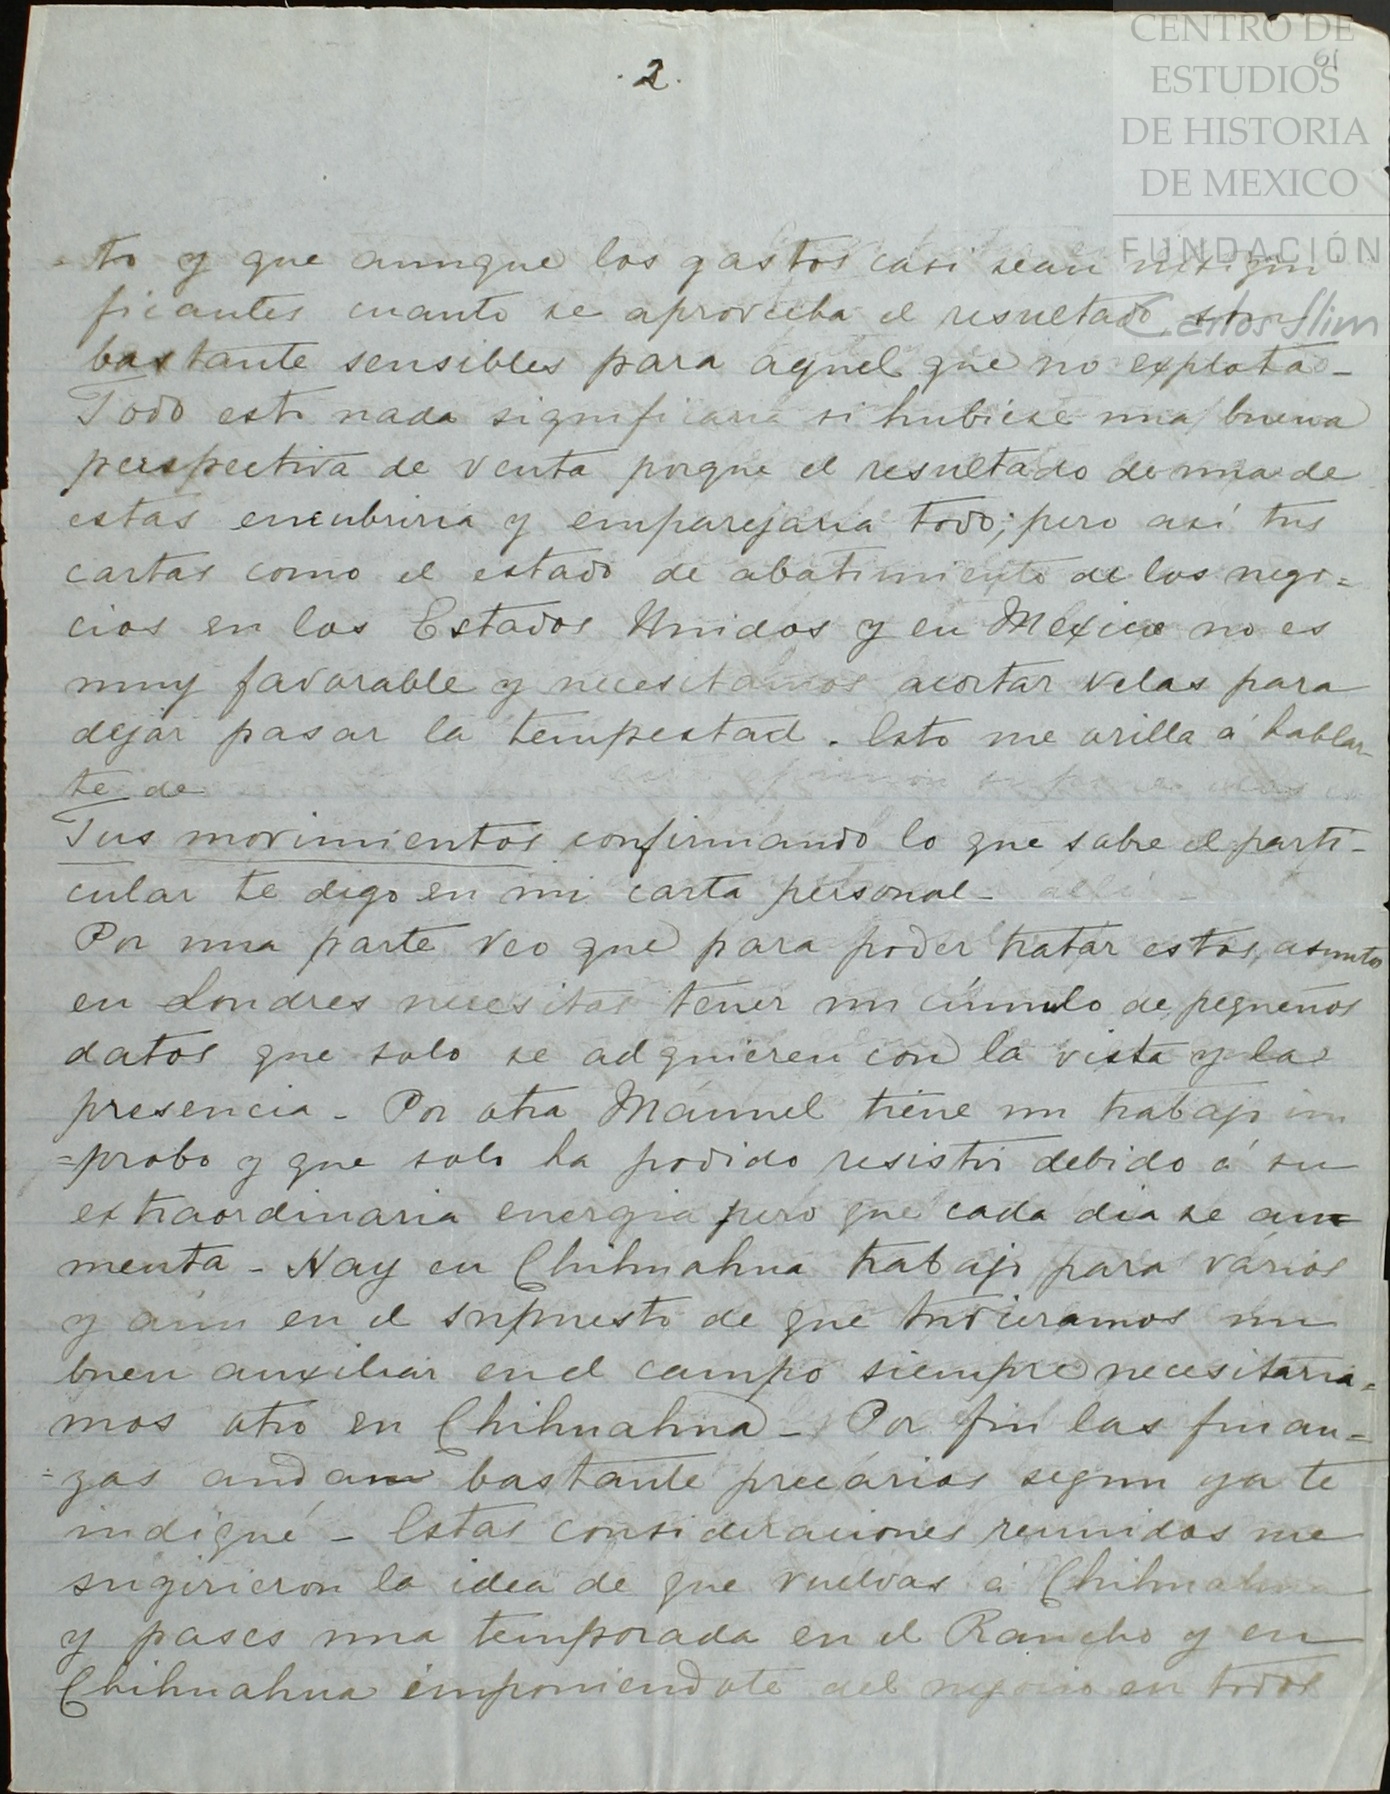 .2.
61
CENTRO DE
ESTUDIOS
DE HISTORIA
DE MEXICO
FUNDACIÓN
Carlos Slim
-to y que aunque los gastos casi sean insigni
ficantes cuanto se aprovecha el resultado, son
bastante sensibles para aquel que no explota-
Todo esto nada significaria si hubiese una buena
perspectiva de venta porque el resultado de una de
estas encubriria y emparejaria todo; pero así tus
cartas como el estado de abatimiento de los nego=
cios en los Estados Unidos y en Mexico no es
muy favorable y necesitamos acortar velas para
dejar pasar la tempestad. Esto me orilla á hablar-
te de
Tus movimientos confirmando lo que sobre el parti-
cular te digo en mi carta personal-
Por una parte veo que para poder tratar estos asuntos
en Londres necesitas tener un cúmulo de pequeños
datos que solo se adquieren con la vista y la
presencia - Por otra Manuel tiene un trabajo im
=probo y que solo ha podido resistir debido á su
extraordinaria energia pero que cada dia se au=
menta - Hay en Chihuahua trabajo para varios
y aun en el supuesto de que tuvieramos un
buen auxiliar en el campo siempre necesitaria=
mos otro en Chihuahua - Por fin las finan=
=zas andan bastante precarias segun ya te
indiqué - Estas consideraciones reunidas me
sugirieron la idea de que vuelvas á Chihuahua
y pases una temporada en el Rancho y en
Chihuahua imponiendote del negocio en todos